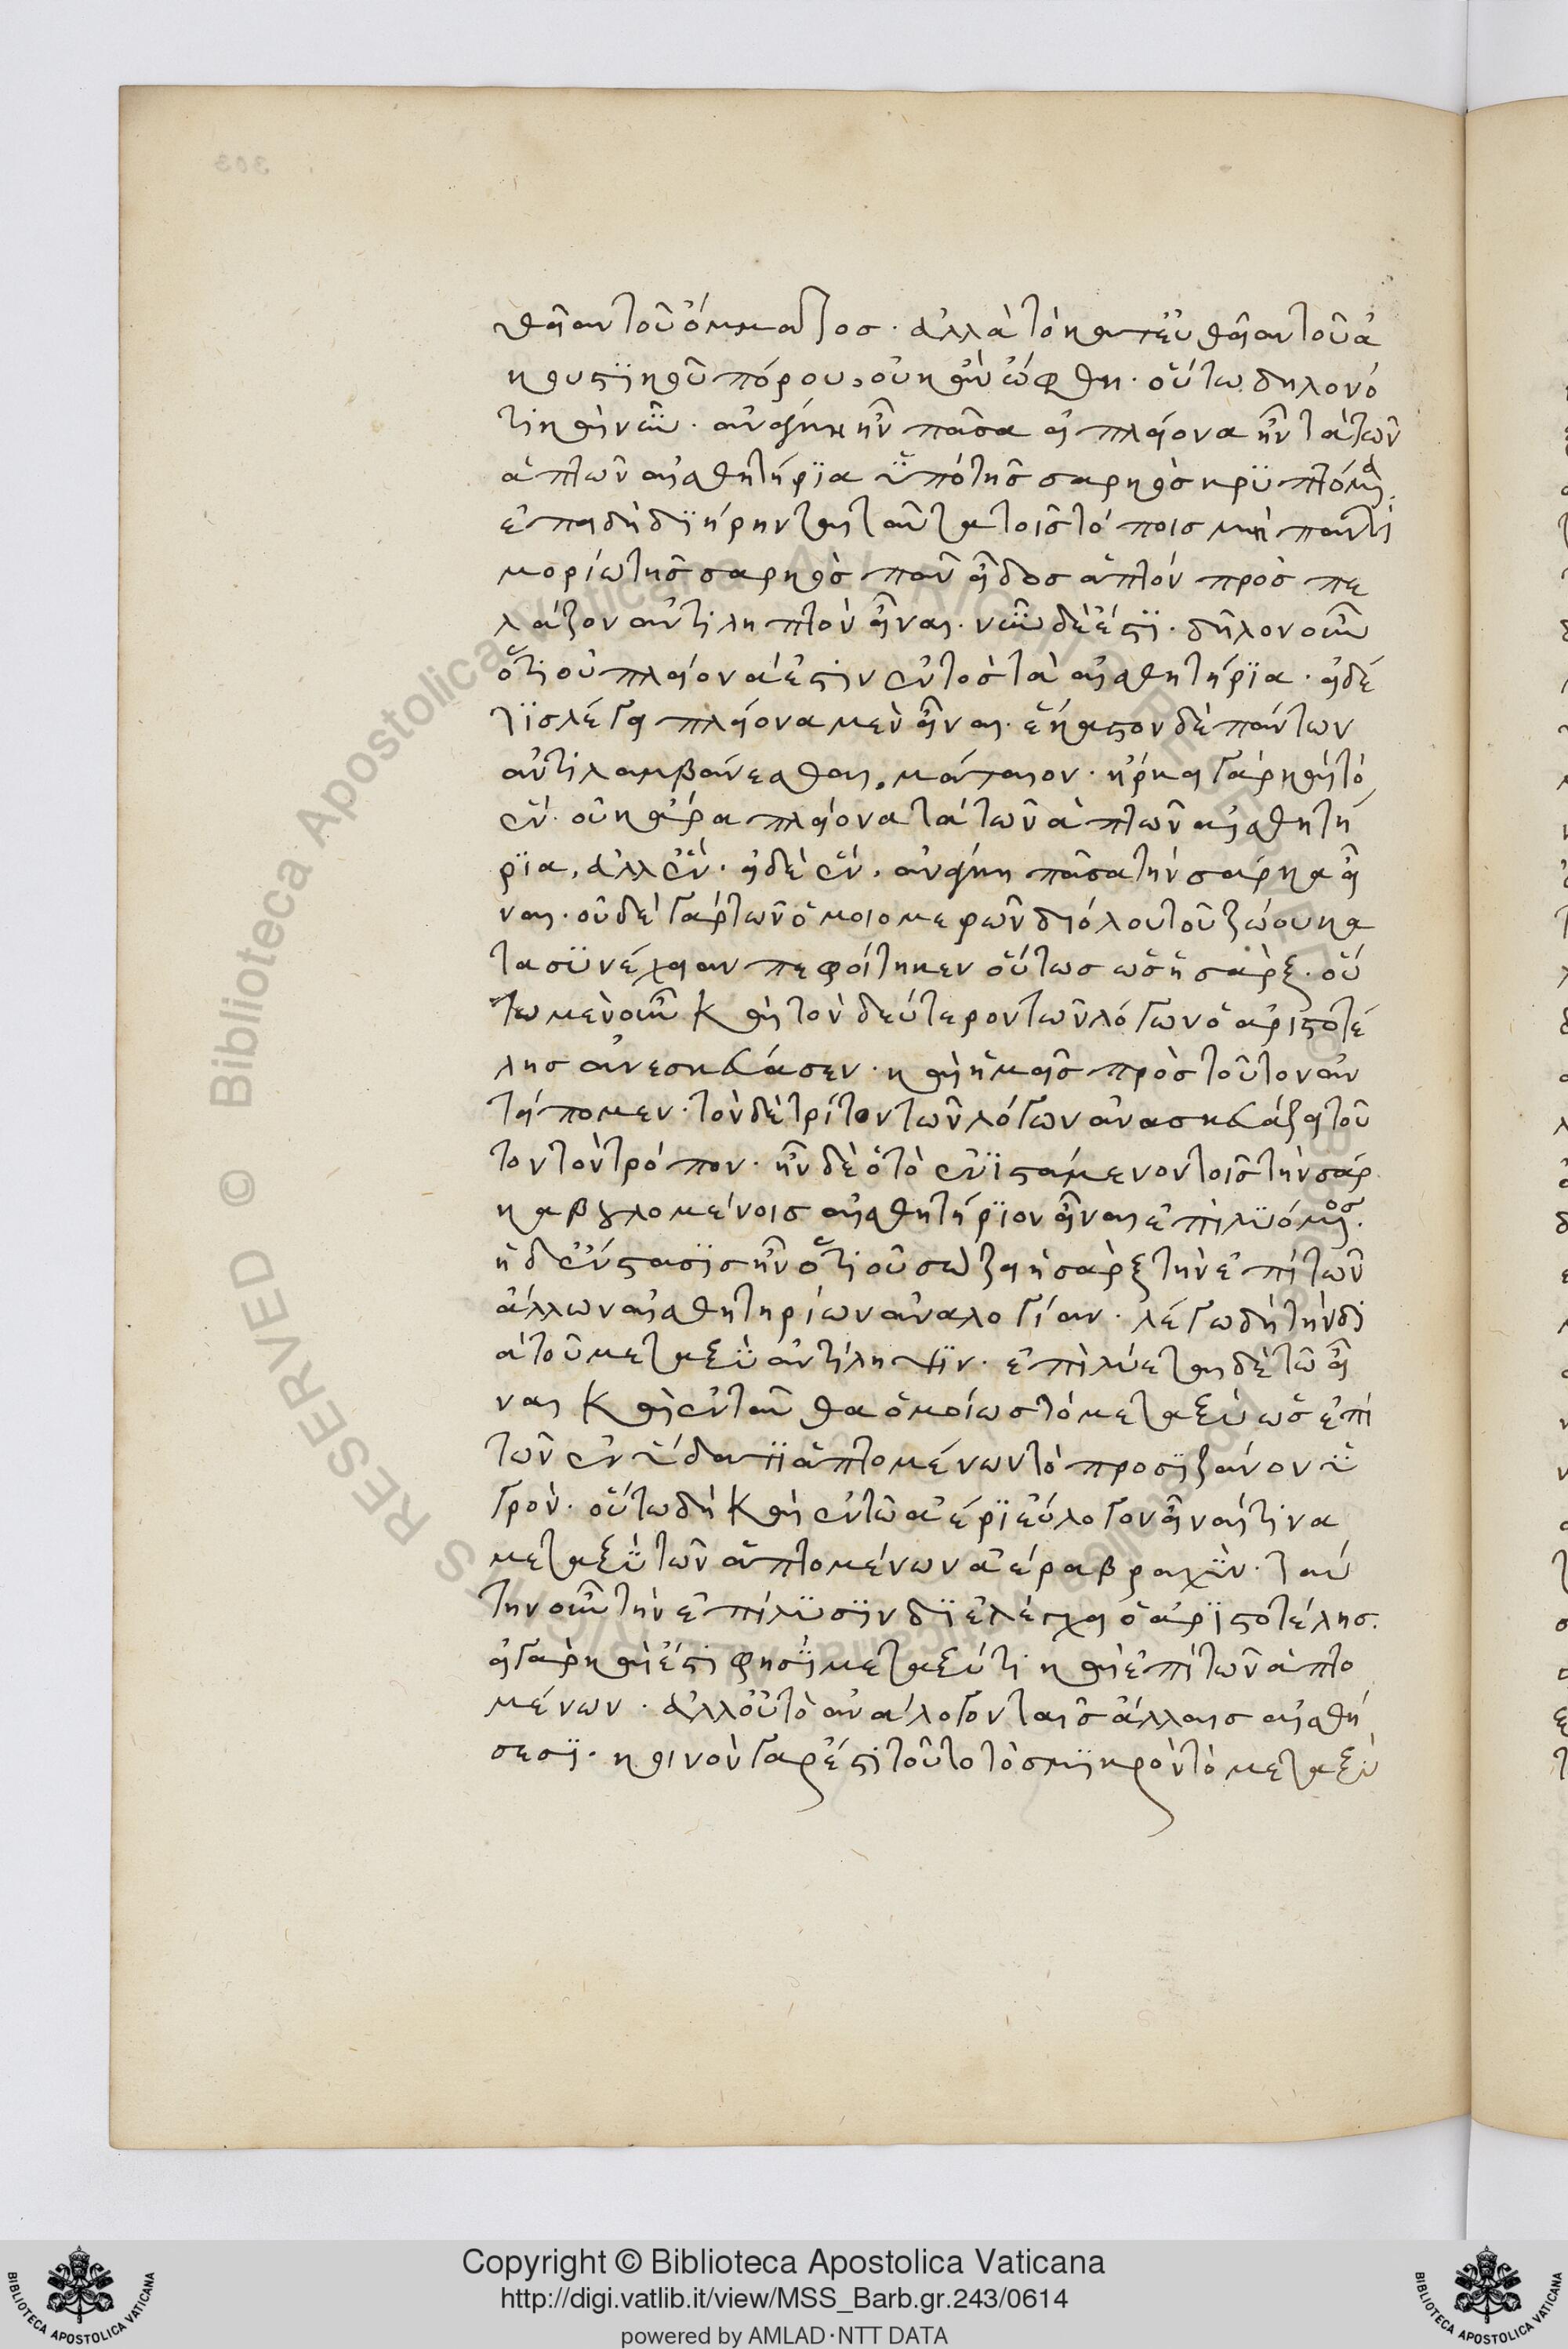 θεῖαν τοῦ ὄμματος. ἀλλὰ τὸ κατ' εὐθεῖαν τοῦ ἀ
κουστικοῦ πόρου, οὐκ ἂν ὤφθη. οὕτω δηλονό
τι καὶ νῦν. ἀνάγκη ἦν πᾶσα εἰ πλείονα ἦν τὰ τῶν
ἁπτῶν αἰσθητήρια ὑπὸ τῆς σαρκὸς κρυπτόμενα.
ἐπειδὴ διῄρηνται ταῦτα τοῖς τόποις μὴ παντὶ
μορίω τῆς σαρκὸς πᾶν εἶδος ἁπτὸν προσπε
λάζον ἀντιληπτὸν εἶναι. νῦν δὲ ἔστι. δῆλον οὖν
ὅτι οὐ πλείονά ἐστιν ἐντὸς τὰ αἰσθητήρια. εἰ δέ
τις λέγει πλείονα μὲν εἶναι. ἕκαστον δὲ πάντων
ἀντιλαμβάνεσθαι, μάταιον. ἤρκει γὰρ καὶ τὸ
ἕν. οὐκ ἄρα πλείονα τὰ τῶν ἁπτῶν αἰσθητή
ρια, ἀλλ' ἕν. εἰ δὲ ἕν, ἀνάγκη πᾶσα τὴν σάρκα εἶ
ναι. οὐδὲ γὰρ τῶν ὁμοιομερῶν δι' ὅλου τοῦ ζώου κα
τὰ συνέχειαν πεφοίτηκεν οὕτως ὡς ἡ σάρξ. οὕ
τω μὲν οὖν καὶ τὸν δεύτερον τῶν λόγων ὁ ἀριστοτέ
λης ἀνεσκεύασεν. καὶ ἡμεῖς πρὸς τοῦτον ἀν
τείπομεν. τὸν δὲ τρίτον τῶν λόγων ἀνασκευάζει τοῦ
τον τὸν τρόπον. ἦν δὲ ὁ τὸ ἐνιστάμενον τοῖς τὴν σάρ
κα βουλομένοις αἰσθητήριον εἶναι ἐπιλυόμενος.
ἡ δ' ἔνστασις ἦν ὅτι οὐ σώζει ἡ σὰρξ τὴν ἐπὶ τῶν
ἄλλων αἰσθητηρίων ἀναλογίαν. λέγω δὴ τὴν δι
ὰ τοῦ μεταξὺ ἀντίληψιν. ἐπιλύεται δὲ τῶ εἶ
ναι καὶ ἐνταῦθα ὁμοίως τὸ μεταξὺ ὡς ἐπὶ
τῶν ἐν ὕδατι ἁπτομένων τὸ προσιζάνον ὑ
γρόν. οὕτω δὴ καὶ ἐν τῶ ἀέρι εὔλογον εἶναί τινα
μεταξὺ τῶν ἁπτομένων ἀέρα βραχύν. ταύ
την οὖν τὴν ἐπίλυσιν διελέγχει ὁ ἀριστοτέλης.
εἰ γὰρ καὶ ἔστι φησὶ μεταξύ τι καὶ ἐπὶ τῶν ἁπτο
μένων. ἀλλ' οὔτὸ ἀνάλογον ταῖς ἄλλαις αἰσθή
σεσι. κοινὸν γάρ ἐστι τοῦτο τὸ σμικρὸν τὸ μεταξὺ
303
Copyright © Biblioteca Apostolica Vaticana
http://digi.vatlib.it/view/MSS_Barb.gr.243/0614
powered by AMLAD·NTT DATA